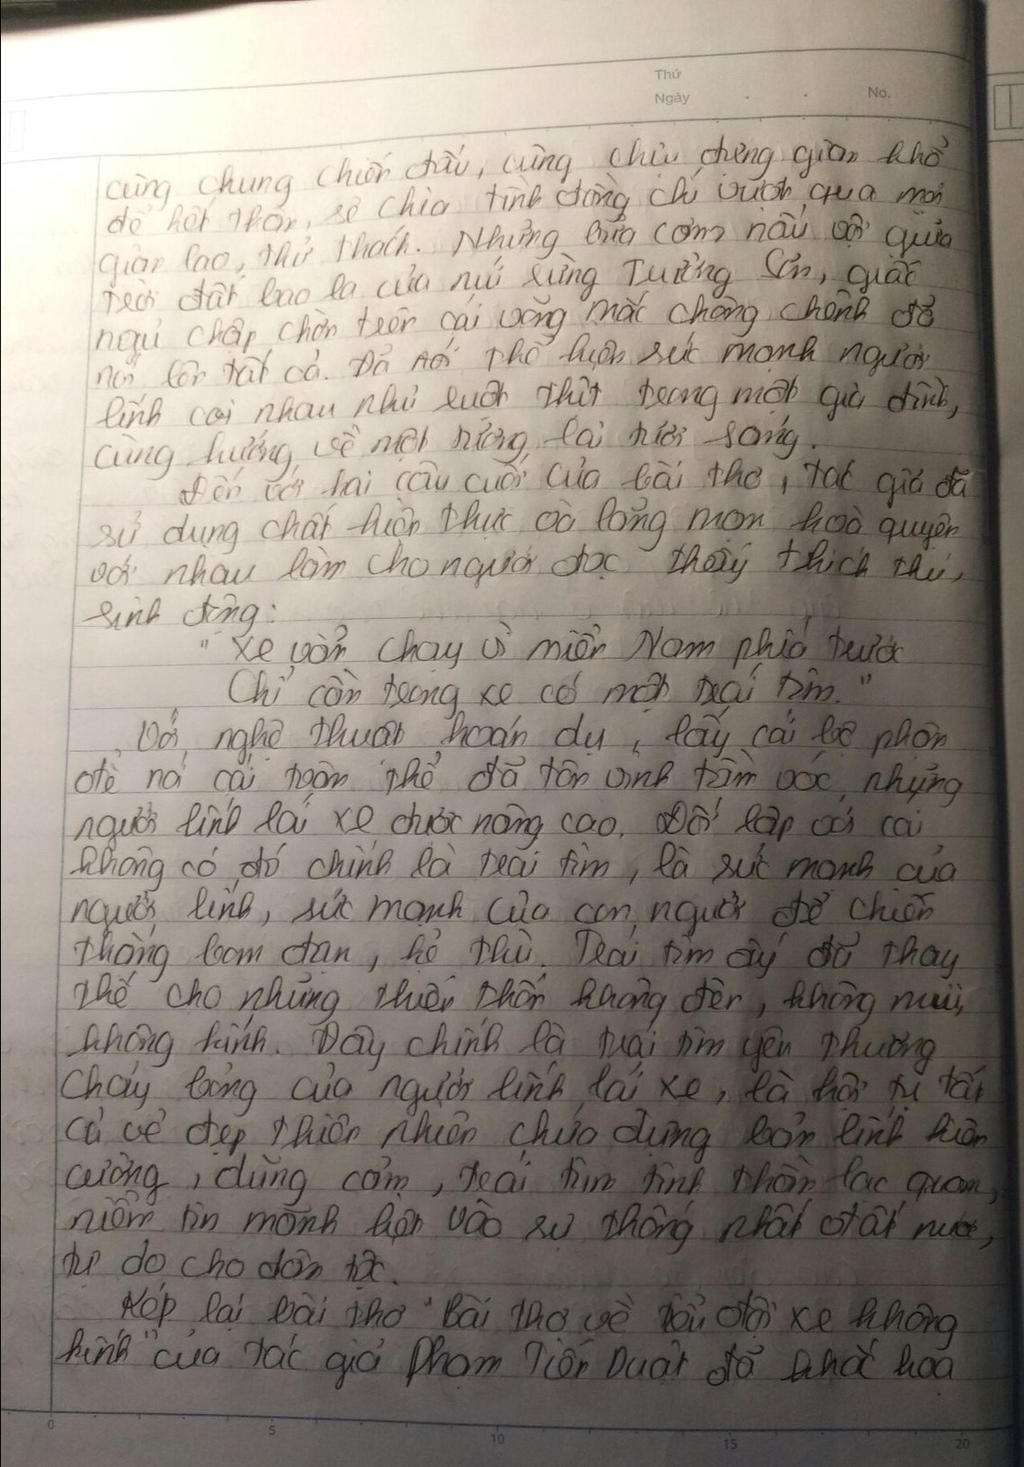 Thứ
Ngày . . No.
cùng chung chiến đấu, cùng chịu đựng gian khổ
để hết thân, sẻ chia tình đồng chí vượt qua mọi
gian lao, thử thách. Những bữa cơm nấu vội giữa
trời đất bao la của núi rừng Trường Sơn, giấc
ngủ chập chờn trên cái võng mắc chông chênh đã
nói lên tất cả. Đã nói thể hiện sức mạnh người
lính coi nhau như ruột thịt trong một gia đình,
cùng hướng về một tương lai tươi sáng.
Đến với hai câu cuối của bài thơ, tác giả đã
sử dụng chất hiện thực và lãng mạn hoà quyện
với nhau làm cho người đọc thấy thích thú,
sinh động:
"Xe vẫn chạy vì miền Nam phía trước
Chỉ cần trong xe có một trái tim."
Với nghệ thuật hoán dụ, lấy cái bộ phận
để nói cái toàn thể đã tôn vinh tầm vóc những
người lính lái xe được nâng cao. Đối lập với cái
không có đó chính là trái tim, là sức mạnh của
người lính, sức mạnh của con người để chiến
thắng bom đạn, kẻ thù. Trái tim ấy đã thay
thế cho những thiếu thốn không đèn, không mui,
không kính. Đây chính là trái tim yêu thương
cháy bỏng của người lính lái xe, là hội tụ tất
cả vẻ đẹp thiên nhiên chứa đựng bản lĩnh kiên
cường, dũng cảm, trái tim tinh thần lạc quan,
niềm tin mãnh liệt vào sự thống nhất đất nước,
tự do cho dân tộc.
Kép lại bài thơ "Bài thơ về tiểu đội xe không
kính" của tác giả Phạm Tiến Duật đã khắc hoạ
0 5 10 15 20